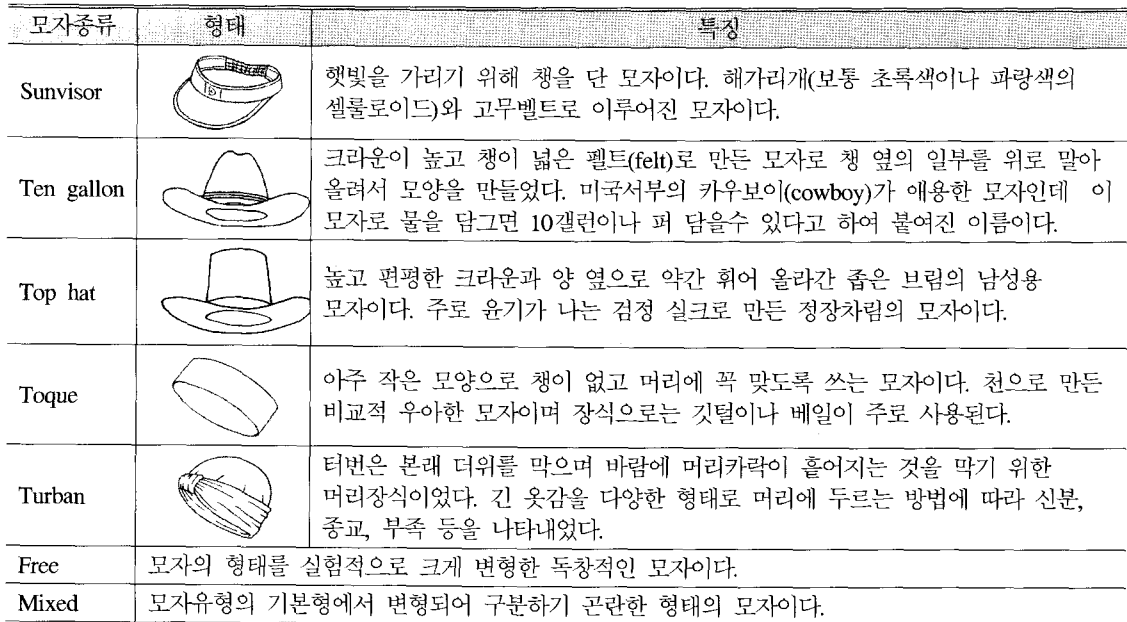 모자종류 형태 특징
Sunvisor
햇빛을 가리기 위해 챙을 단 모자이다. 해가리개(보통 초록색이나 파랑색의
셀룰로이드)와 고무벨트로 이루어진 모자이다.
Ten gallon
크라운이 높고 챙이 넓은 펠트(felt)로 만든 모자로 챙 옆의 일부를 위로 말아
올려서 모양을 만들었다. 미국서부의 카우보이(cowboy)가 애용한 모자인데 이
모자로 물을 담그면 10갤런이나 퍼 담을수 있다고 하여 붙여진 이름이다.
Top hat
높고 편평한 크라운과 양 옆으로 약간 휘어 올라간 좁은 브림의 남성용
모자이다. 주로 윤기가 나는 검정 실크로 만든 정장차림의 모자이다.
Toque
아주 작은 모양으로 챙이 없고 머리에 꼭 맞도록 쓰는 모자이다. 천으로 만든
비교적 우아한 모자이며 장식으로는 깃털이나 베일이 주로 사용된다.
Turban
터번은 본래 더위를 막으며 바람에 머리카락이 흩어지는 것을 막기 위한
머리장식이었다. 긴 옷감을 다양한 형태로 머리에 두르는 방법에 따라 신분,
종교, 부족 등을 나타내었다.
Free 모자의 형태를 실험적으로 크게 변형한 독창적인 모자이다.
Mixed 모자유형의 기본형에서 변형되어 구분하기 곤란한 형태의 모자이다.